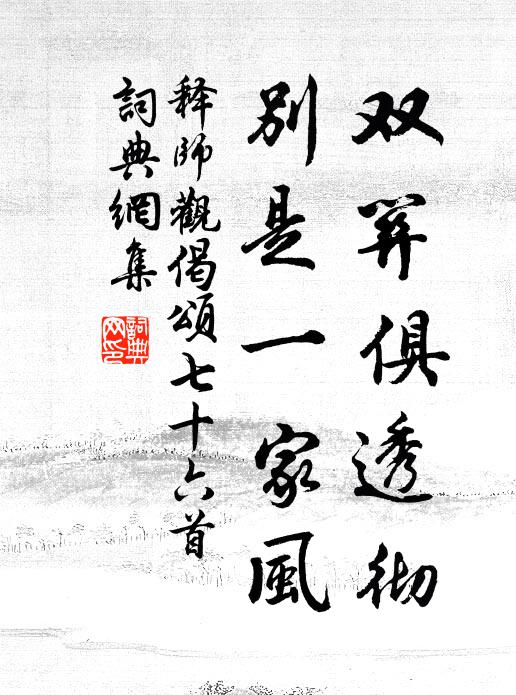 双关俱透彻
别是一家風
释師觀偈頌七十六首
詞典網集
詞典
网印